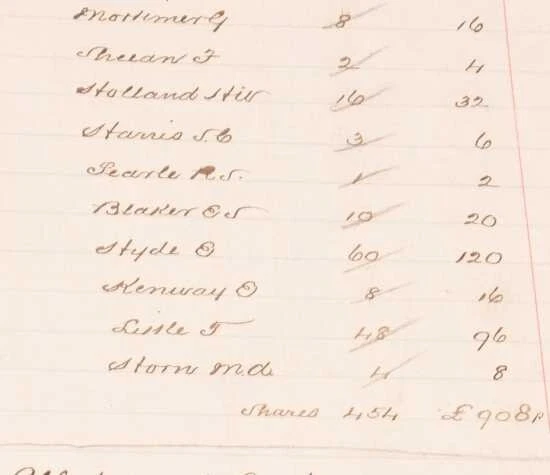 Mortimer G 8 16
Sheean F 2 4
Holland 16 32
Harris S.C 3 6
Searle R.S. 1 2
Blaker E S 10 20
Hyde O 60 120
Kenway O 8 16
Little T 48 96
Storn M.d. 4 8
Shares 454 £908